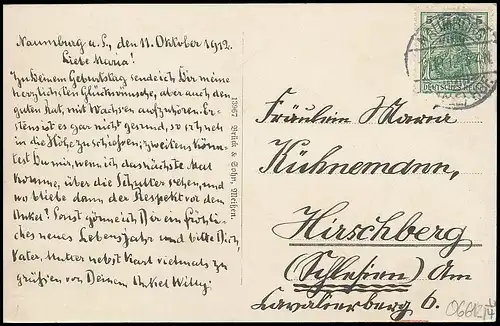 Naumburg a. S., den 11. Oktober 1912.
Liebe Maria!
Zu Deinem Geburtstag sende ich Dir meine
herzlichsten Glückwünsche, aber auch den
guten Rat, mit Wachsen aufzuhören. Er-
stens ist es gar nicht gesund, so schnell
in die Höhe zu schießen; zweitens könn-
test Du mir, wenn ich das nächste Mal
komme, über die Schulter sehen, und
wo bliebe dann der Respekt vor dem
Onkel! Sonst gönne ich Dir ein fröhli-
ches neues Lebensjahr und bitte Dich,
Vater, Mutter nebst Karl vielmals zu
grüßen von Deinem Onkel Willy.
13967 Brück & Sohn, Meißen.
5 5
DEUTSCHES REICH
NAUMBURG
Fräulein Maria
Kühnemann,
Hirschberg
(Schlesien) Am
Cavalierberg 6.